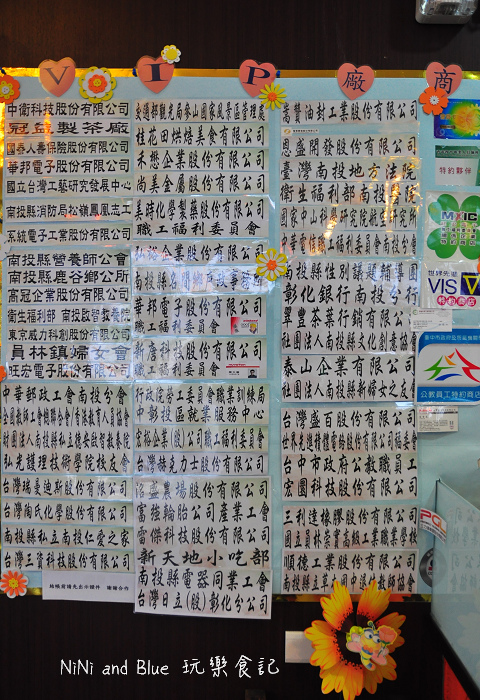 V I P 廠 商
中衛科技股份有限公司
冠益製茶廠
國泰人壽保險股份有限公司
華邦電子股份有限公司
國立台灣工藝研究發展中心
南投縣消防局松嶺鳳凰志工
系統電子工業股份有限公司
南投縣營養師公會
南投縣鹿谷鄉公所
高冠企業股份有限公司
衛生福利部 南投啟智教養院
東京威力科創股份有限公司
員林鎮婦女會
旺宏電子股份有限公司
中華郵政工會南投分會
弘光護理技術學院校友會
台灣瑞曼迪斯股份有限公司
台灣陶氏化學股份有限公司
南投縣私立南投仁愛之家
台灣三資科技股份有限公司
交通部觀光局參山國家風景區管理處
桂花田烘焙美食有限公司
禾懋企業股份有限公司
尚美金屬股份有限公司
美時化學製藥股份有限公司
職工福利委員會
裕企業股份有限公司
華邦電子股份有限公司
職工福利委員會
新唐科技股份有限公司
行政院勞工委員會職業訓練局
中彰投區就業服務中心
宏裕企業(股)公司職工福利委員會
台灣赫克力士股份有限公司
農場股份有限公司
富強輪胎公司產業工會
雲傑科技股份有限公司
新天地小吃部
南投縣電器同業工會
台灣日立(股)彰化分公司
結帳前請先出示證件 謝謝合作
嵩贊油封工業股份有限公司
恩盛開發股份有限公司
臺灣南投地方法院
衛生福利部南投醫院
國家中山科學研究院航空研究所
中華電信職工福利委員會南投分會
南投縣性別議題輔導團
彰化銀行南投分行
翠豐茶葉行銷有限公司
社團法人南投縣文化創意協會
泰山企業有限公司
社團法人南投縣新婦女之友會
台灣盛百股份有限公司
台中市政府公教職員工
宏圖科技股份有限公司
三利達橡膠股份有限公司
國立員林崇實高級工業職業學校
順德工業股份有限公司
特約夥伴
MXIC
世邦先進
VIS
特約商店
公教員工特約商店
NiNi and Blue 玩樂食記